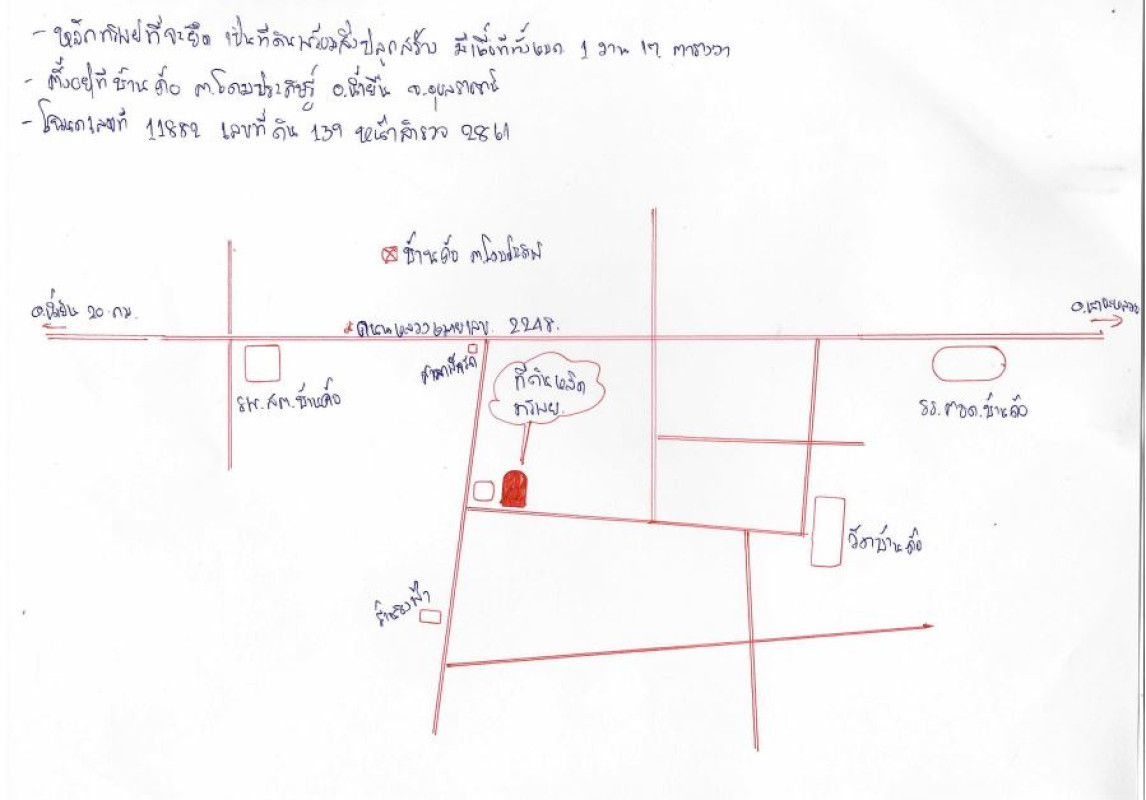 - หลักทรัพย์ที่จะยึด เป็นที่ดินพร้อมสิ่งปลูกสร้าง มีเนื้อที่ทั้งหมด 1 งาน 17 ตารางวา
- ตั้งอยู่ที่บ้านค้อ ต.โดมประดิษฐ์ อ.น้ำยืน จ.อุบลราชธานี
- โฉนดเลขที่ 11882 เลขที่ดิน 139 หน้าสำรวจ 2861
บ้านค้อ
อ.น้ำยืน 20 กม.
ถนนหลวงหมายเลข 2248.
รพ.สต.บ้านค้อ
ที่ดินหลัก
ทรัพย์.
รร.ตชด.บ้านค้อ
วัดบ้านค้อ